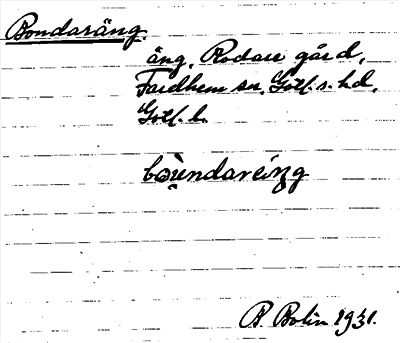 Bondaräng.
äng, Rodare gård,
Fardhem sn, Gotl. s. hd,
Gotl. l.
B. Bolin 1931.